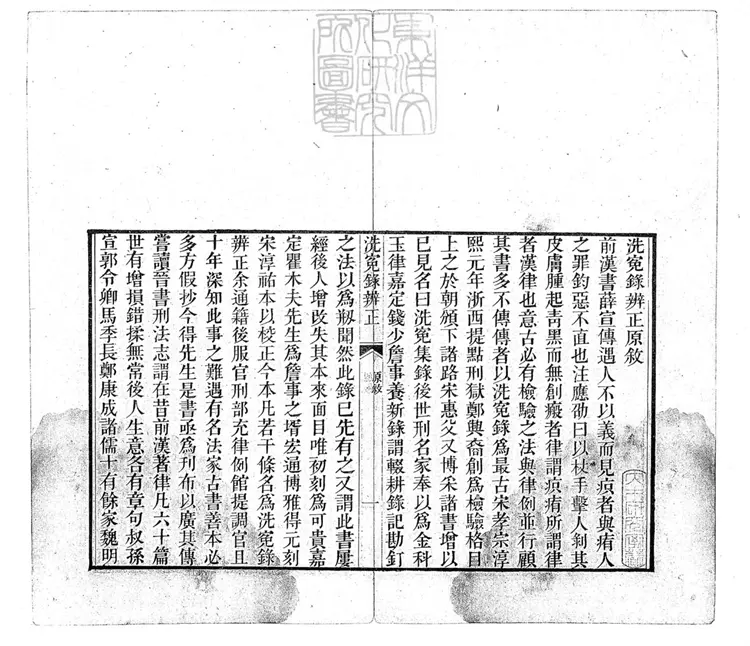 東洋文
化研究
所圖書
洗冤錄辨正原敘
前漢書薛宣傳遇人不以義而見疻者與痏人
之罪鈞惡不直也注應劭曰以杖手擊人剝其
皮膚腫起青黑而無創瘢者律謂疻痏所謂律
者漢律也意古必有檢驗之法與律例並行顧
其書多不傳傳者以洗冤錄爲最古宋孝宗淳
熙元年浙西提點刑獄鄭興裔創爲檢驗格目
上之於朝頒下諸路宋惠父又博采諸書增以
已見名曰洗冤集錄後世刑名家奉以爲金科
玉律嘉定錢少詹事養新錄謂輟耕錄記勘釘
洗冤錄辨正
原敘
一
之法以爲剏聞然此錄已先有之又謂此書屢
經後人增改失其本來面目唯初刻爲可貴嘉
定瞿木夫先生爲詹事之壻宏通博雅得元刻
宋淳祐本以校正今本凡若干條名爲洗冤錄
辨正余通籍後服官刑部充律例館提調官且
十年深知此事之難遇有名法家古書善本必
多方假抄今得先生是書亟爲刊布以廣其傳
嘗讀晉書刑法志謂在昔前漢著律凡六十篇
世有增損錯揉無常後人生意各有章句叔孫
宣郭令卿馬季長鄭康成諸儒十有餘家魏明